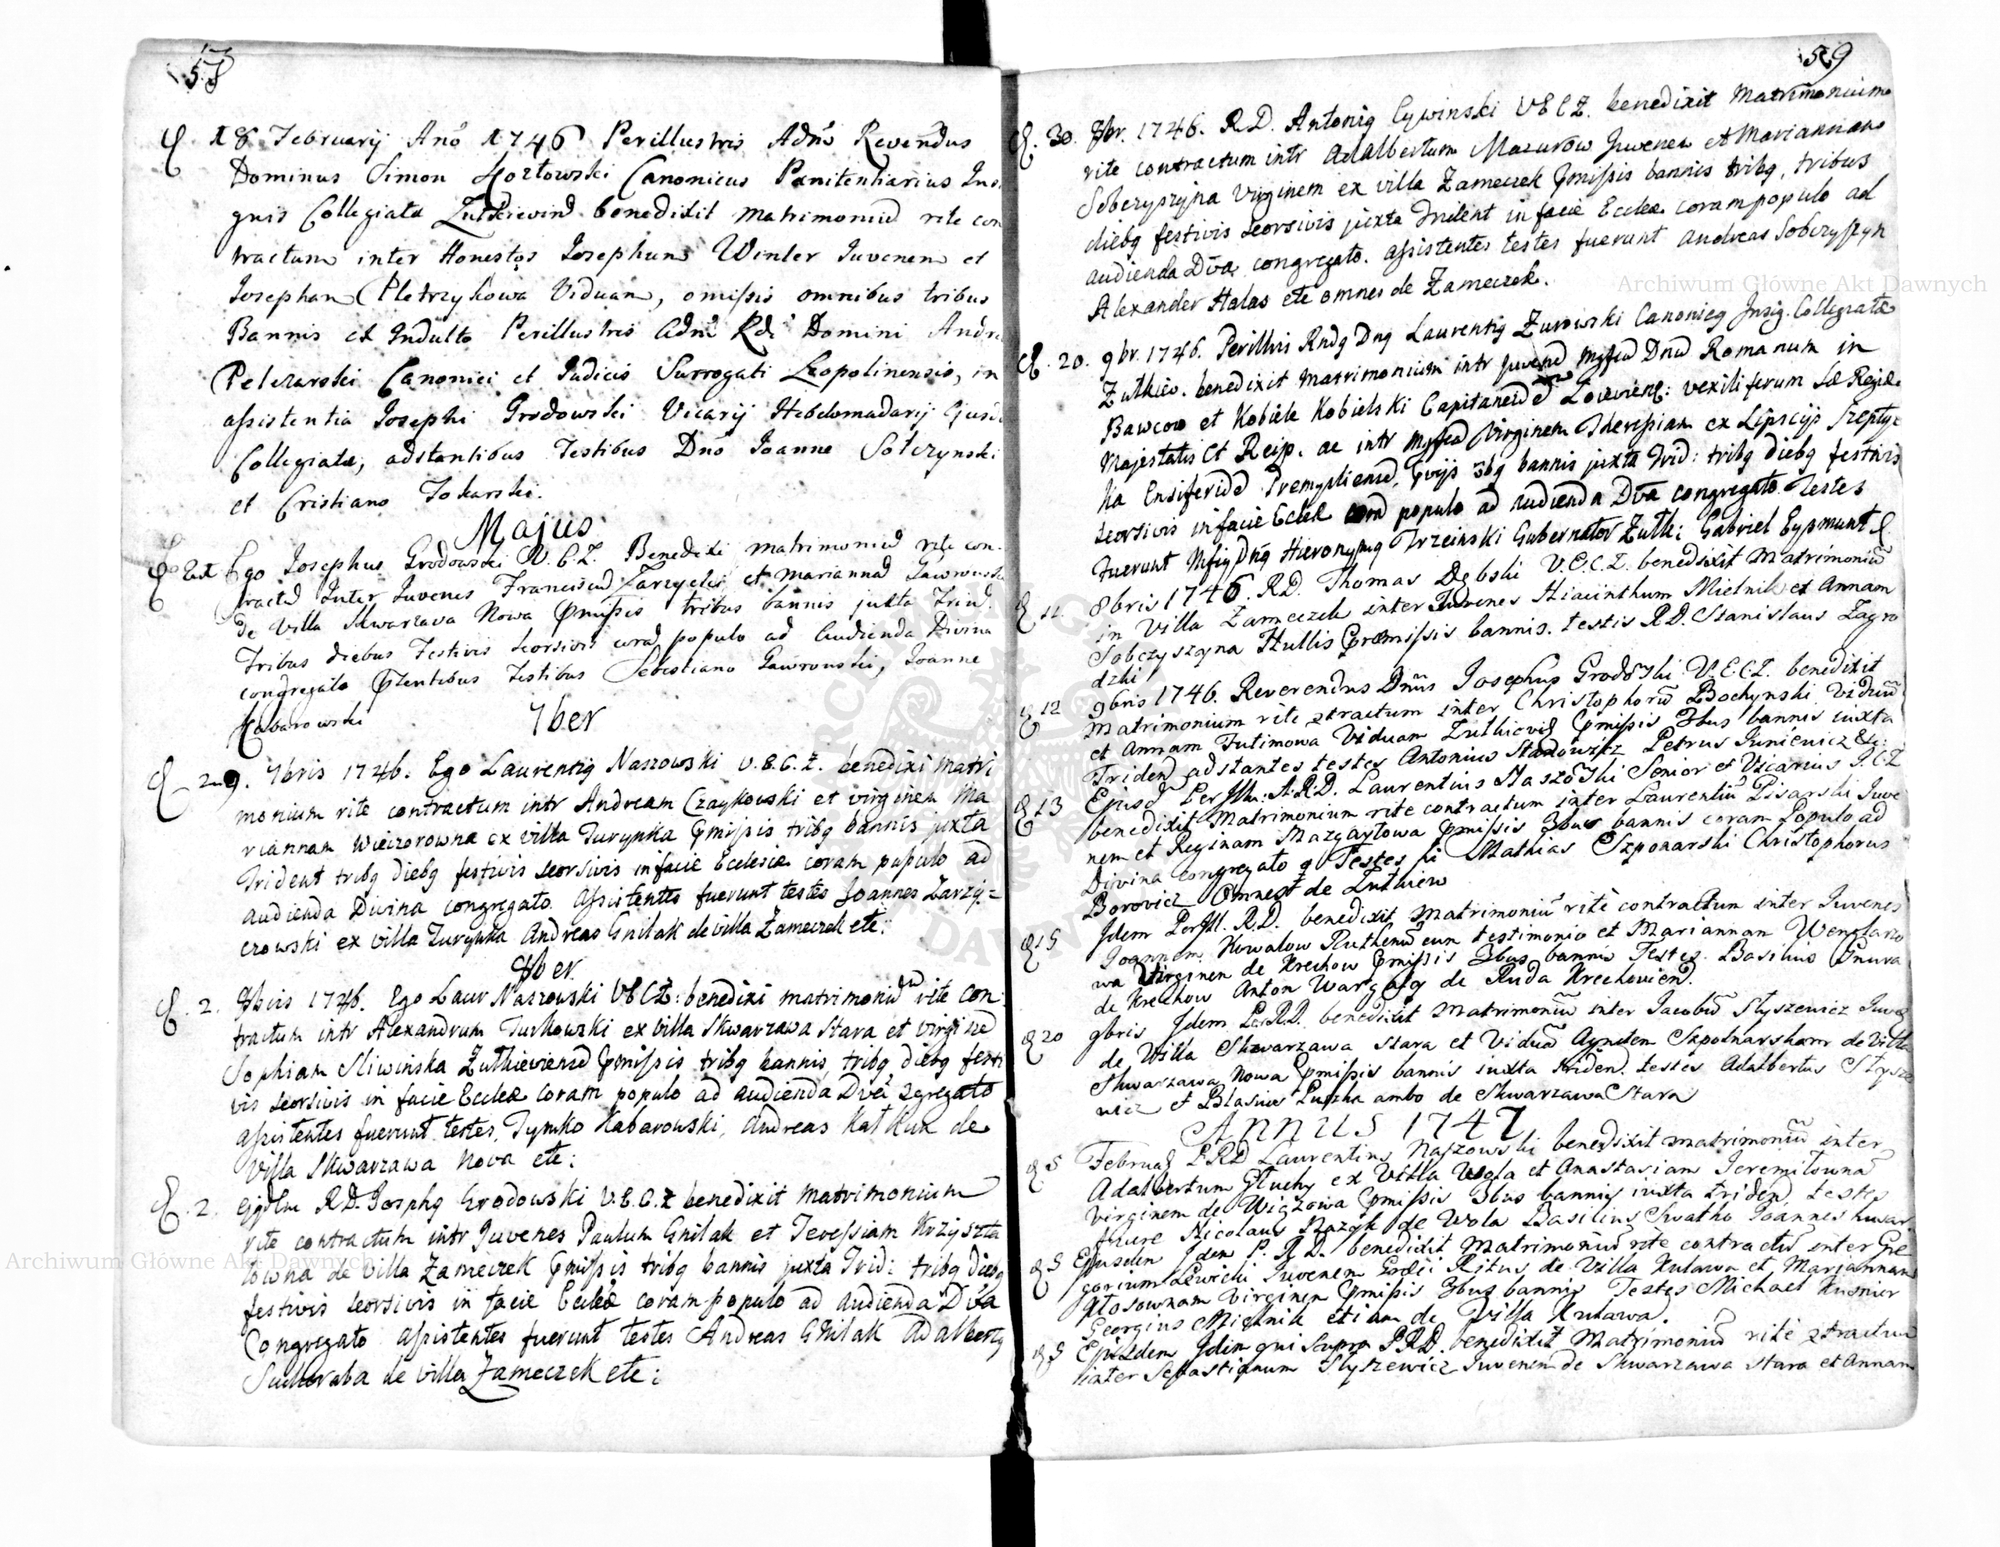 58
18 Februarij Ano 1746 Perillustris Adm Revendus
Dominus Simon Kozłowski Canonicus Penitentiarius Insi
gnis Collegiatæ Zułkievien benedixit matrimoniu rite con
tractum inter Honestos Josephum Winler Juvenem et
Josepham Pietrzykowa Viduam, omissis omnibus tribus
Bannis ex Indulto Perillustris Adm Rdi Domini Andre
Pelczarski Canonici et Judicis Surrogati Leopoliensis, in
assistentia Josephi Grodowski Vicarij Hebdomadarij Ejusd
Collegiatæ, adstantibus Testibus Dno Joanne Sołczynski
et Cristiano Tokarski.
Majus
Ego Josephus Grodowski V. E. C. Z. Benedixi matrimoniu rite con
tractu Inter Juvenes Franciscu Zarzycki et Marianna Gawrowska
de Villa Skwarzava Nova pmissis tribus bannis juxta Trid.
Tribus diebus Festivis seorsivis cora populo ad Audienda Divina
congregato Testibus Sebestiano Gawrowski, Joanne
Habarowski
7ber
29. 7bris 1746. Ego Laurentig Naszowski V. E. C. Z. benedixi matri
monium rite contractum intr Andream Czaykowski et virginem Ma
riannam Wieczorowna ex villa Turynka pmissis tribg bannis juxta
Trident tribg diebg festivis seorsivis in facie Ecclesiæ coram populo ad
audienda Divina congregato. Assistentes fuerunt testes Joannes Zarzy=
czowski ex villa Turynka Andreas Gnilak de villa Zameczek etc:
8ber
2. 8bris 1746. Ego Laur Naszowski VECZ: benedixi matrimoniu rite con
tractum intr Alexandrum Turkowski ex villa Skwarzawa Stara et virgine
Sophiam Sliwinska Zułkiewiensē pmissis tribg bannis, tribg diebg festi
vis seorsivis in facie Eccleæ coram populo ad audienda Dvā 2gregato
assistentes fuerunt testes, Tymko Habarowski, Andreas de
Villa Skwarzawa Nova etc:
2. RD. Josephg Grodowski V. E. C. Z benedixit matrimonium
rite contractum intr Juvenes Paulum Gnilak et Teressiam Krzyszta
łowna de Villa Zameczek pmissis tribg bannis juxta Trid: tribg diebg
festivis seorsivis in facie Eccleæ coram populo ad audienda Dvā
Congregato assistentes fuerunt testes Andreas Gnilak Adalbertg
Sucharaba de villa Zameczek etc:
59
30. 8br. 1746. R.D. Antonig Cywinski VECZ. benedixit Matrimonium
rite contractum intr Adalbertum Mazurow Juvenem et Mariannam
Sobczyszyna Virginem ex villa Zameczek pmissis bannis tribg, tribus
diebg festivis seorsivis juxta Trident in facie Eccleæ coram populo ad
audienda Dva congregato. assistentes testes fuerunt Andreas Sobczyszyn
Alexander Halas etc omnes de Zameczek.
20. 9br. 1746. Perillris Rndg Dng Laurentig Zurowski Canonicg Insig. Collegiatæ
Zułkiev. benedixit matrimonium intr Juvenē Mgfcu Dnū Romanum in
Bawcow et Kobiele Kobielski vexiliferum Sæ Regiæ
Majestatis et Reip. ac intr Mgfca Virginem Theressiam ex Lipscijs Szepty
ka Ensiferidē Premysliensē, 3bg bannis juxta Trid: tribg diebg festivis
seorsivis in facie Eccleæ corā populo ad audienda Dvā congregato. Testes
fuerunt Hieronymg Trzcinski Gubernator Zułk: Gabriel Eygmunt
11. 8bris 1746. RD. Thomas Dębski V.E.C.Z. benedixit matrimoniū
in Villa Zameczek inter Juvenes Hiacinthum Mielnik et Annam
Sobczyszyna Nullis Præmissis bannis. testis R.D. Stanislaus Zagro
dzki
12 9bris 1746. Reverendus Dnus Josephus Grodowski V.E.C.Z. benedixit
matrimonium rite 2tractum inter Christophorū Bochynski Viduū
et Annam Jutimowa Viduam Zułkievie pmissis 3bus bannis iuxta
Triden adstantes testes Antonius Petrus Juniewicz
13 Ejusd Per Ill: A.R.D. Laurentius Naszowski Senior et Vicarius I.C.Z
benedixit Matrimonium rite contractum inter Laurentiū Pisarski Juve
nem et Reginam Mazgaytowa pmissis 3bus bannis coram populo ad
Divina congregato Testes Mathias Szponarski Christophorus
Borovicz Omnes de Zułkiew
15 Idem Per Ill. R.D. benedixit matrimoniū ritè contractum inter Juvenes
Joannem Kowalow Ruthenū cum testimonio et Mariannam Wenglarzo
wa Virginem de Krechow pmissis 3bus bannis Testes. Basilius
de Krechow Anton de Ruda Krechovien.
20 9bris Idem Per R.D. benedixit matrimoniū inter Jacobū Styszewicz Juve
de Villa Skwarzawa Stara et Viduā Agneten Szponarskam de Villa
Skwarzawa Nowa pmissis bannis iuxta triden. testes Adalbertus Stysze
wicz et Blasius Puszka ambo de Skwarzawa Stara
ANNUS 1747
5 Februa P.R.D Laurentius Naszowski benedixit matrimoniū inter
Adalbertum Głuchy ex Villa Wola et Anastasiam Jeremiłowna
Virginem de Wiązowa pmissis 3bus bannis iuxta triden. testes
fuere Nicolaus Mazyk de Wola Basilius Joannes
5 Ejusdem Idem P. R.D. benedixit Matrimoniū rite contractū inter Gre
gorium Lewicki Juvenem Græci Ritus de Villa Kulawa et Mariannam
Głosownam Virginem pmissis 3bus bannis Testes Michael Kusnier
Georgius Mielnik etiam de Villa Kulawa.
5 Ejusdem Idem qui supra P.R.D. benedixit Matrimoniū ritè 2tractum
inter Sebastianum Styszewicz Juvenem de Skwarzawa Stara et Annam
Archiwum Główne Akt Dawnych
Archiwum Główne Akt Dawnych